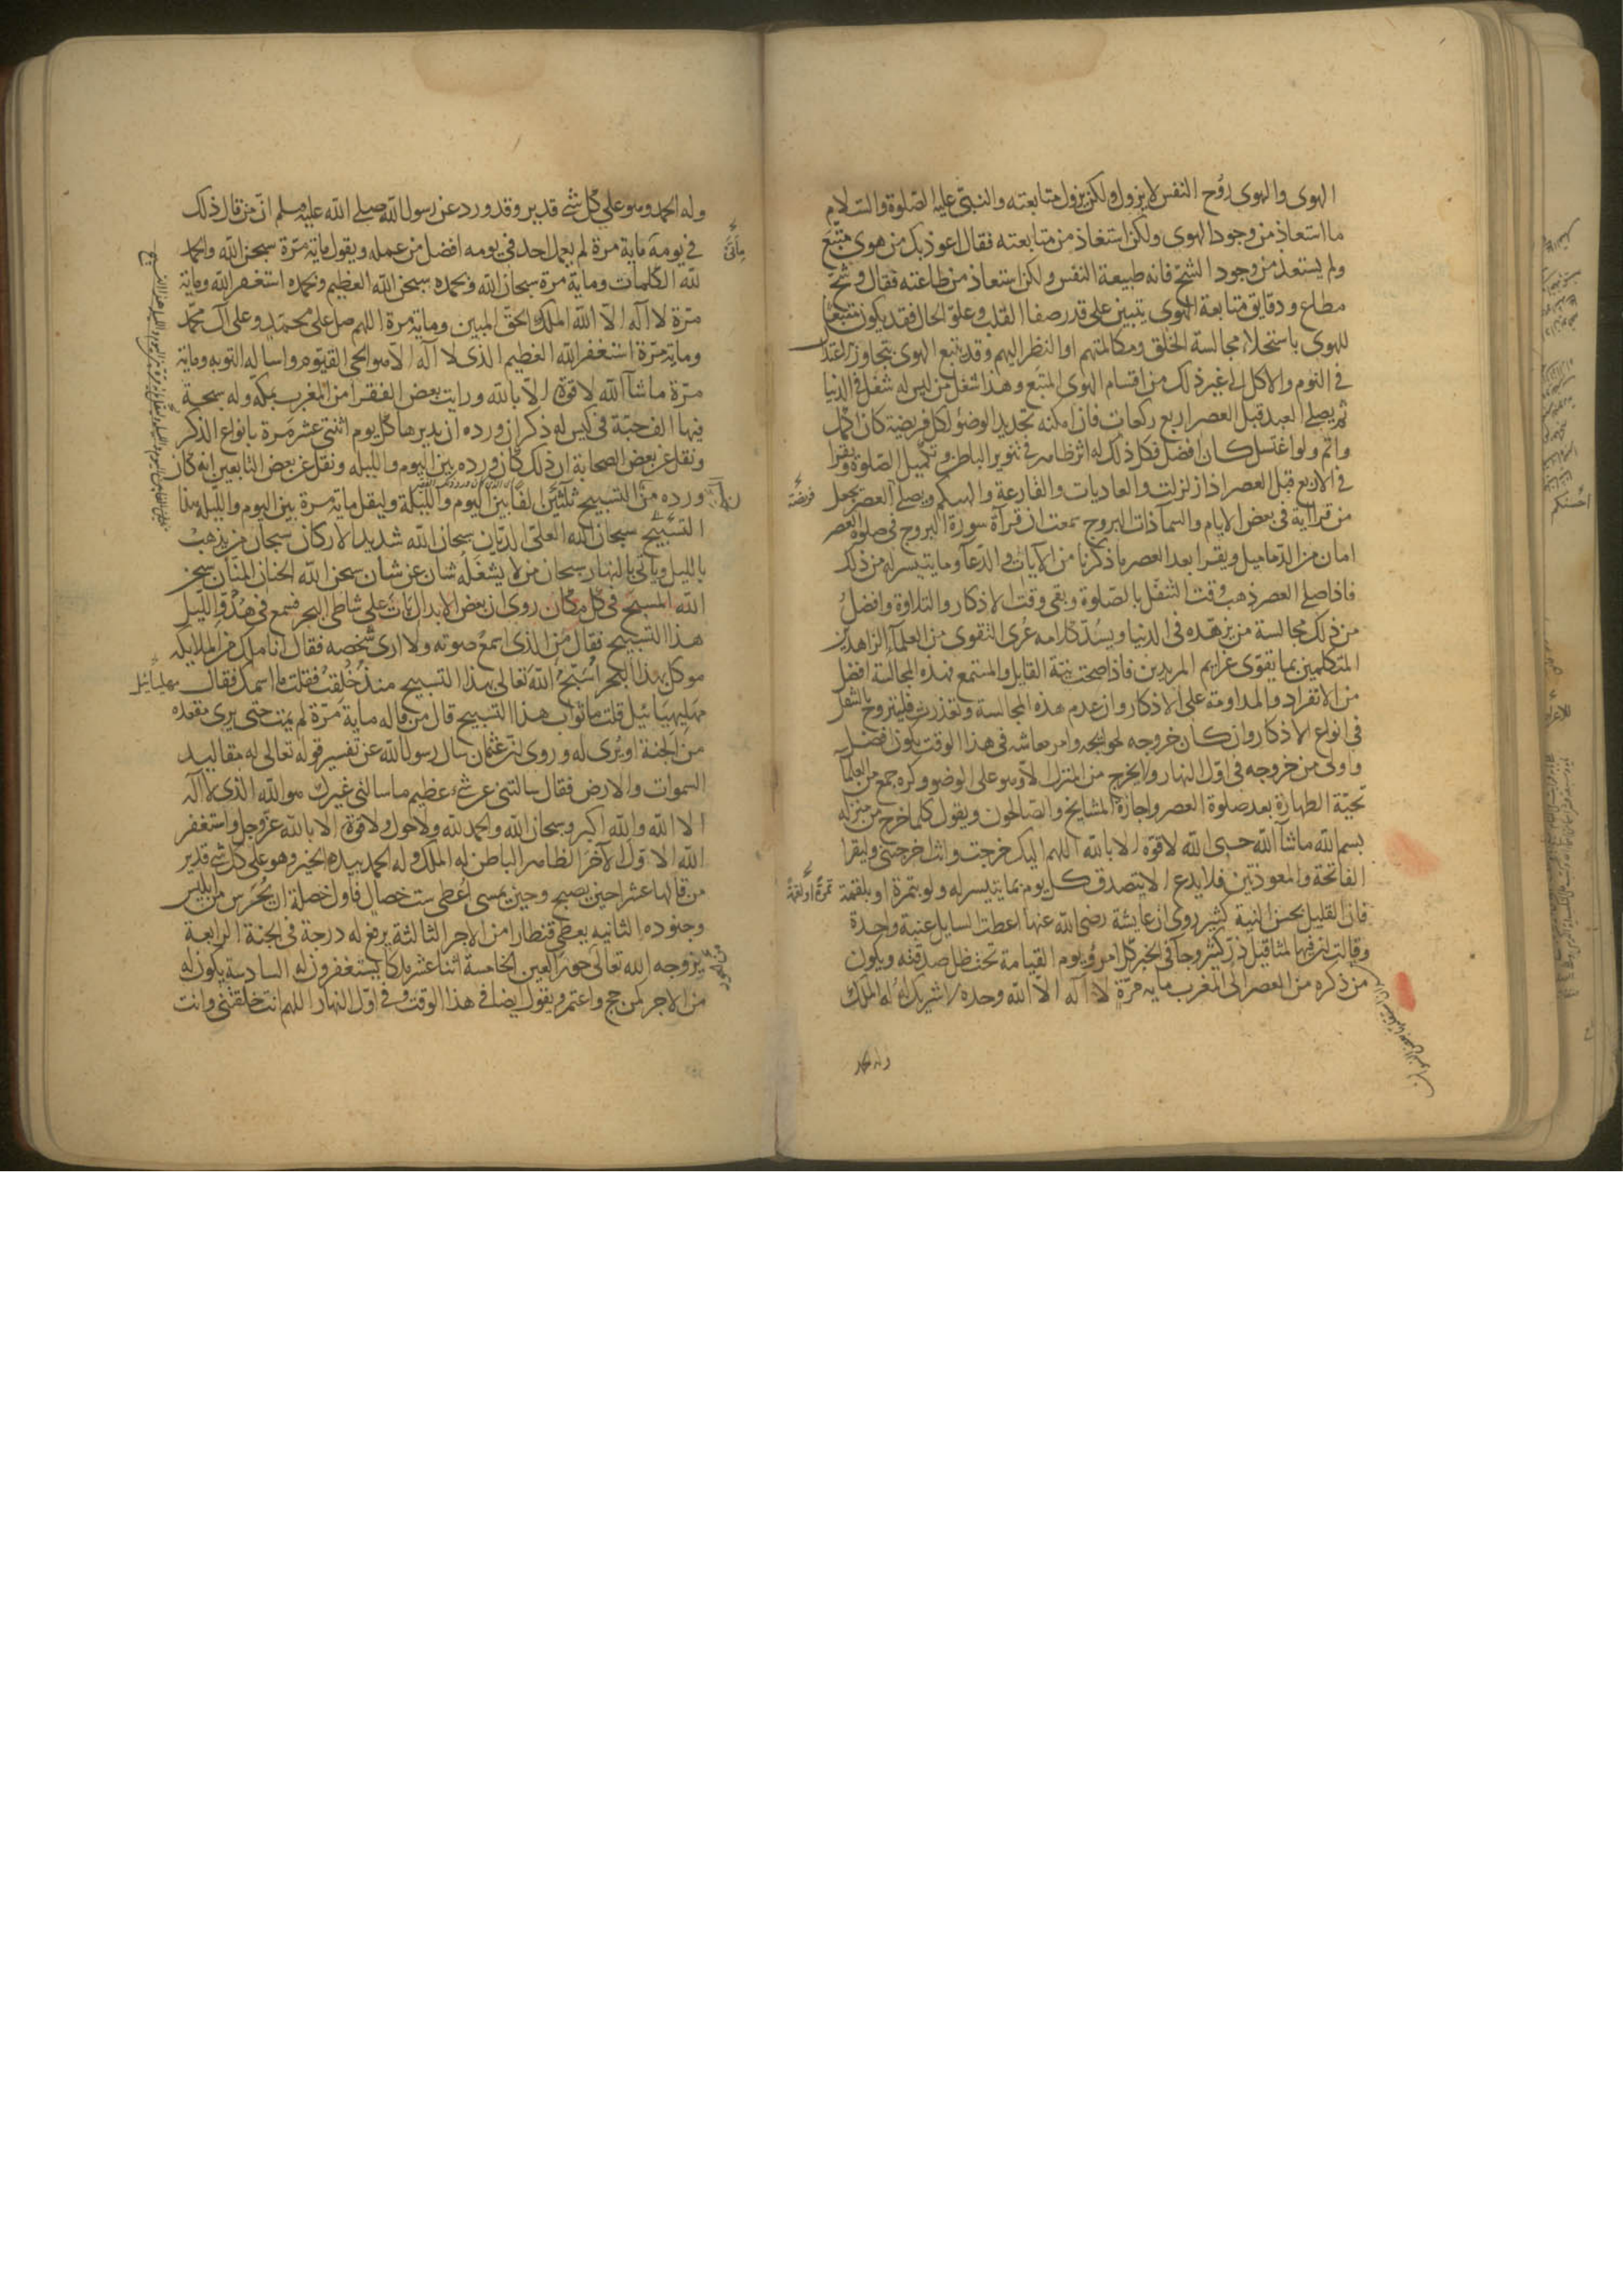 الهوى والهوى روح النفس لا يزول ولكن يزول متابعته والنبى عليه الصلوة والسلام
ما استعاذ من وجود الهوى ولكن استعاذ من متابعته فقال اعوذ بك من هوى متبع
ولم يستعذ من وجود الشح فانه طبيعة النفس ولكن استعاذ من طاعته فقال وشح
مطاع ودقايق متابعة الهوى يتبين على قدر صفا القلب وعلو الحال فقد يكون متبعا
للهوى باستحلاء مجالسة الخلق ومكالمتهم او النظر اليهم وقد يتبع الهوى بتجاوز الاعتدال
فى النوم والاكل الى غير ذلك من اقسام الهوى المتبع وهذا شغل من ليس له شغل فى الدنيا
ثم يصلى العبد قبل العصر اربع ركعات فان امكنه تجديد الوضو لكل فريضة كان اكمل
واتم ولو اغتسل كان افضل فكل ذلك له اثر ظاهر فى تنوير الباطن وتكميل الصلوة ويقرا
فى الاربع قبل العصر اذا زلزلت والعاديات والقارعة والهيكم ويصلى العصر يجعل
من قرايته فى بعض الايام والسما ذات البروج سمعت ان قرآة سورة البروج فى صلوة العصر
امان من الدماميل ويقرا بعد العصر ما ذكرنا من الآيات والدعا وما يتيسر له من ذلك
فاذا صلى العصر ذهب وقت التنفل بالصلوة وبقى وقت الاذكار والتلاوة وافضل
من ذلك مجالسة من يزهده فى الدنيا ويسدد كلامه عرى التقوى من العلمآ الزاهدين
المتكلمين بما يقوى عزايم المريدين فاذا صحت نية القايل والمستمع فهذه المجالسة افضل
من الانفراد والمداومة على الاذكار وان عدم هذه المجالسة وتعذرت فليتروح بالتنقل
فى انواع الاذكار وان كان خروجه لحوايجه وامر معاشه فى هذا الوقت يكون افضل
واولى من خروجه فى اول النهار ولا يخرج من المنزل الا وهو على الوضو وكره جمع من العلمآ
تحية الطهارة بعد صلوة العصر واجازه المشايخ والصالحون ويقول كلما خرج من منزله
بسم الله ماشآ الله حسبى الله لا قوة الا بالله اللهم اليك خرجت وانت اخرجتنى وليقرا
الفاتحة والمعوذتين فلا يدع ان لا يتصدق كل يوم بما يتيسر له ولو بتمرة او بلقمة
فان القليل بحسن النية كثير روى ان عايشة رضى الله عنها اعطت السايل عنبة واحدة
وقالت ان فيها لمثاقيل ذر كثير وجآ فى الخبر كل امرؤ يوم القيامة تحت ظل صدقته ويكون
من ذكره من العصر الى المغرب مايه مرة لا اله الا الله وحده لا شريك له له الملك
فريضة
تمرة او لقمة
وله الحمد
وله الحمد وهو على كل شئ قدير وقد ورد عن رسول الله صلى الله عليه وسلم ان من قال ذلك
فى يومه ماية مرة لم يعمل احد فى يومه افضل من عمله ويقول ماية مرة سبحن الله والحمد
لله الكلمات وماية مرة سبحان الله وبحمده سبحن الله العظيم وبحمده استغفر الله وماية
مرة لا اله الا الله الملك الحق المبين وماية مرة اللهم صل على محمد وعلى آل محمد
وماية مرة استغفر الله العظيم الذى لا اله الا هو الحى القيوم واساله التوبه وماية
مرة ماشآ الله لا قوة الا بالله ورايت بعض الفقرا من المغرب بمكة وله سبحة
فيها الف حبة فى كيس له ذكر ان ورده ان يديرها كل يوم اثنتى عشر مرة بانواع الذكر
ونقل عن بعض الصحابة ان ذلك كان ورده بين اليوم والليله ونقل عن بعض التابعين انه كان
ورده من التسبيح ثلثين الفا بين اليوم والليلة وليقل ماية مرة بين اليوم والليله هذا
التسبيح سبحان الله العلى الديان سبحان الله شديد الاركان سبحان من يذهب
بالليل وياتى بالنهار سبحان من لا يشغله شان عن شان سبحن الله الحنان المنان سبحن
الله المسبح فى كل مكان روى ان بعض الابدال بات على شاطى البحر فسمع فى هدو الليل
هذا التسبيح فقال من الذى اسمع صوته ولا ارى شخصه فقال انا ملك من الملايكه
موكل بهذا البحر اسبح الله تعالى بهذا التسبيح منذ خلقت فقلت ما اسمك فقال
مهليهيائيل قلت ما ثواب هذا التسبيح قال من قاله ماية مرة لم يمت حتى يرى مقعده
من الجنة او يرى له وروى ان عثمان سال رسول الله عن تفسير قوله تعالى له مقاليد
السموات والارض فقال سالتنى عن شئ عظيم ما سالنى غيرك هو الله الذى لا اله
الا الله والله اكبر وسبحان الله والحمد لله ولا حول ولا قوة الا بالله عز وجل واستغفر
الله الاول الآخر الظاهر الباطن له الملك وله الحمد بيده الخير وهو على كل شئ قدير
من قالها عشرا حين يصبح وحين يمسى اعطى ست خصال فاول خصلة ان يحرس من ابليس
وجنوده الثانيه يعطى قنطارا من الاجر الثالثة يرفع له درجة فى الجنة الرابعة
يزوجه الله تعالى حور العين الخامسة اثنا عشر ملكا يستغفرون له السادسة يكون له
من الاجر كمن حج واعتمر ويقول ايضا فى هذا الوقت وفى اول النهار اللهم انت خلقتنى وانت